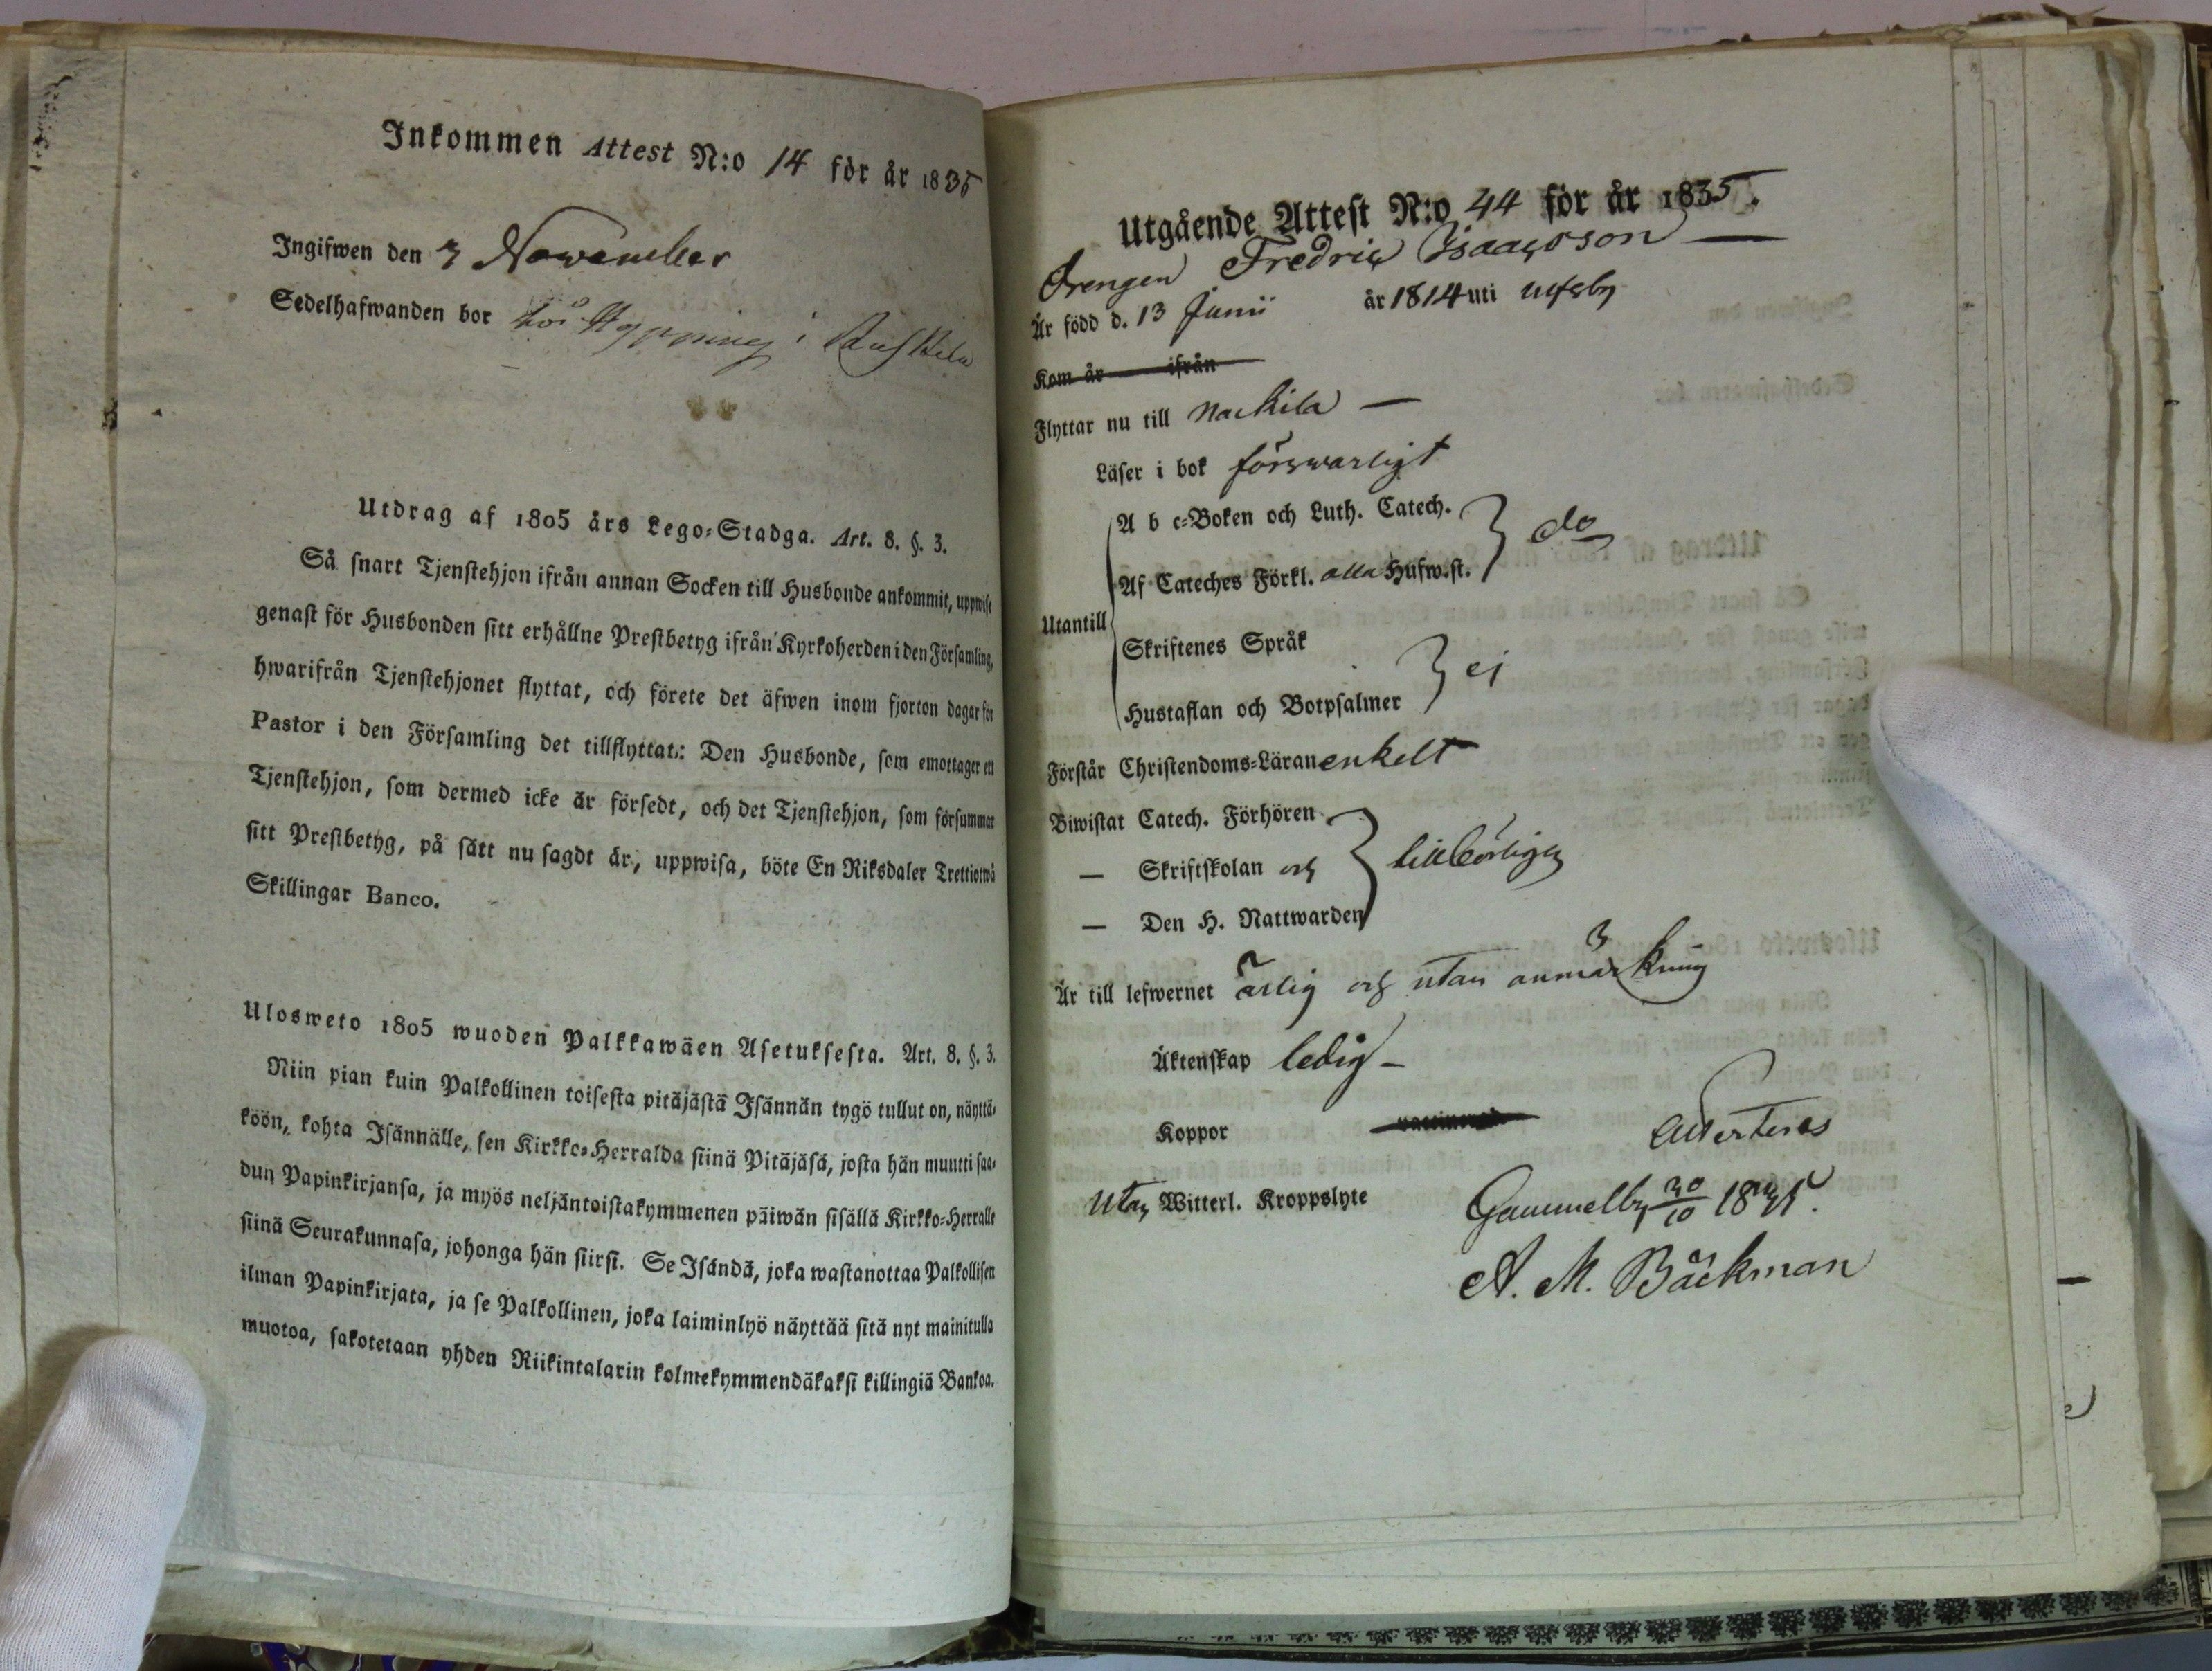 Inkommen Attest N:o 14 för år 1835
Ingifwen den 3 November
Sedelhafwanden bor hos Hypping i
Utdrag af 1805 års Lego-Stadga. Art. 8. §. 3.
Så snart Tjenstehjon ifrån annan Socken till Husbonde ankommit, uppwise
genast för Husbonden sitt erhållne Prestbetyg ifrån Kyrkoherden i den Församling,
hwarifrån Tjenstehjonet flyttat, och förete det äfwen inom fjorton dagar för
Pastor i den Församling det tillflyttat: Den Husbonde, som emottager ett
Tjenstehjon, som dermed icke är försedt, och det Tjenstehjon, som försummar
sitt Prestbetyg, på sätt nu sagdt är, uppwisa, böte En Riksdaler Trettiotwå
Skillingar Banco.
Ulosweto 1805 wuoden Palkkawäen Asetuksesta. Art. 8. §. 3.
Niin pian kuin Palkollinen toisesta pitäjästä Isännän tygö tullut on, näyttä-
köön, kohta Isännälle, sen Kirkko-Herralda siinä Pitäjäsä, josta hän muutti saa-
dun Papinkirjansa, ja myös neljäntoistakymmenen päiwän sisällä Kirkko-Herralle
siinä Seurakunnasa, johonga hän siirsi. Se Isändä, joka wastanottaa Palkollisen
ilman Papinkirjata, ja se Palkollinen, joka laiminlyö näyttää sitä nyt mainitulla
muotoa, sakotetaan yhden Riikintalarin kolmekymmendäkaksi killingiä Bankoa.
Utgående Attest N:o 44 för år 1835.
Drengen Fredric Isaacsson
Är född d. 13 Junii år 1814 uti Ulfsby
Kom år ifrån
Flyttar nu till Nackila
Läser i bok förswarligt
A b c-Boken och Luth. Catech. } do
Af Cateches Förkl. alla Hufw.st.
Utantill
Skriftenes Språk } ei
Hustaflan och Botpsalmer
Förstår Christendoms-Läran enkelt
Biwistat Catech. Förhören
— Skriftskolan och } tillbörligen
— Den H. Nattwarden
Är till lefwernet ärlig och utan anmärkning
Äktenskap ledig
Koppor
attesteras
utan Witterl. Kroppslyte
Gammelby 30/10 1835.
A. M. Bäckman